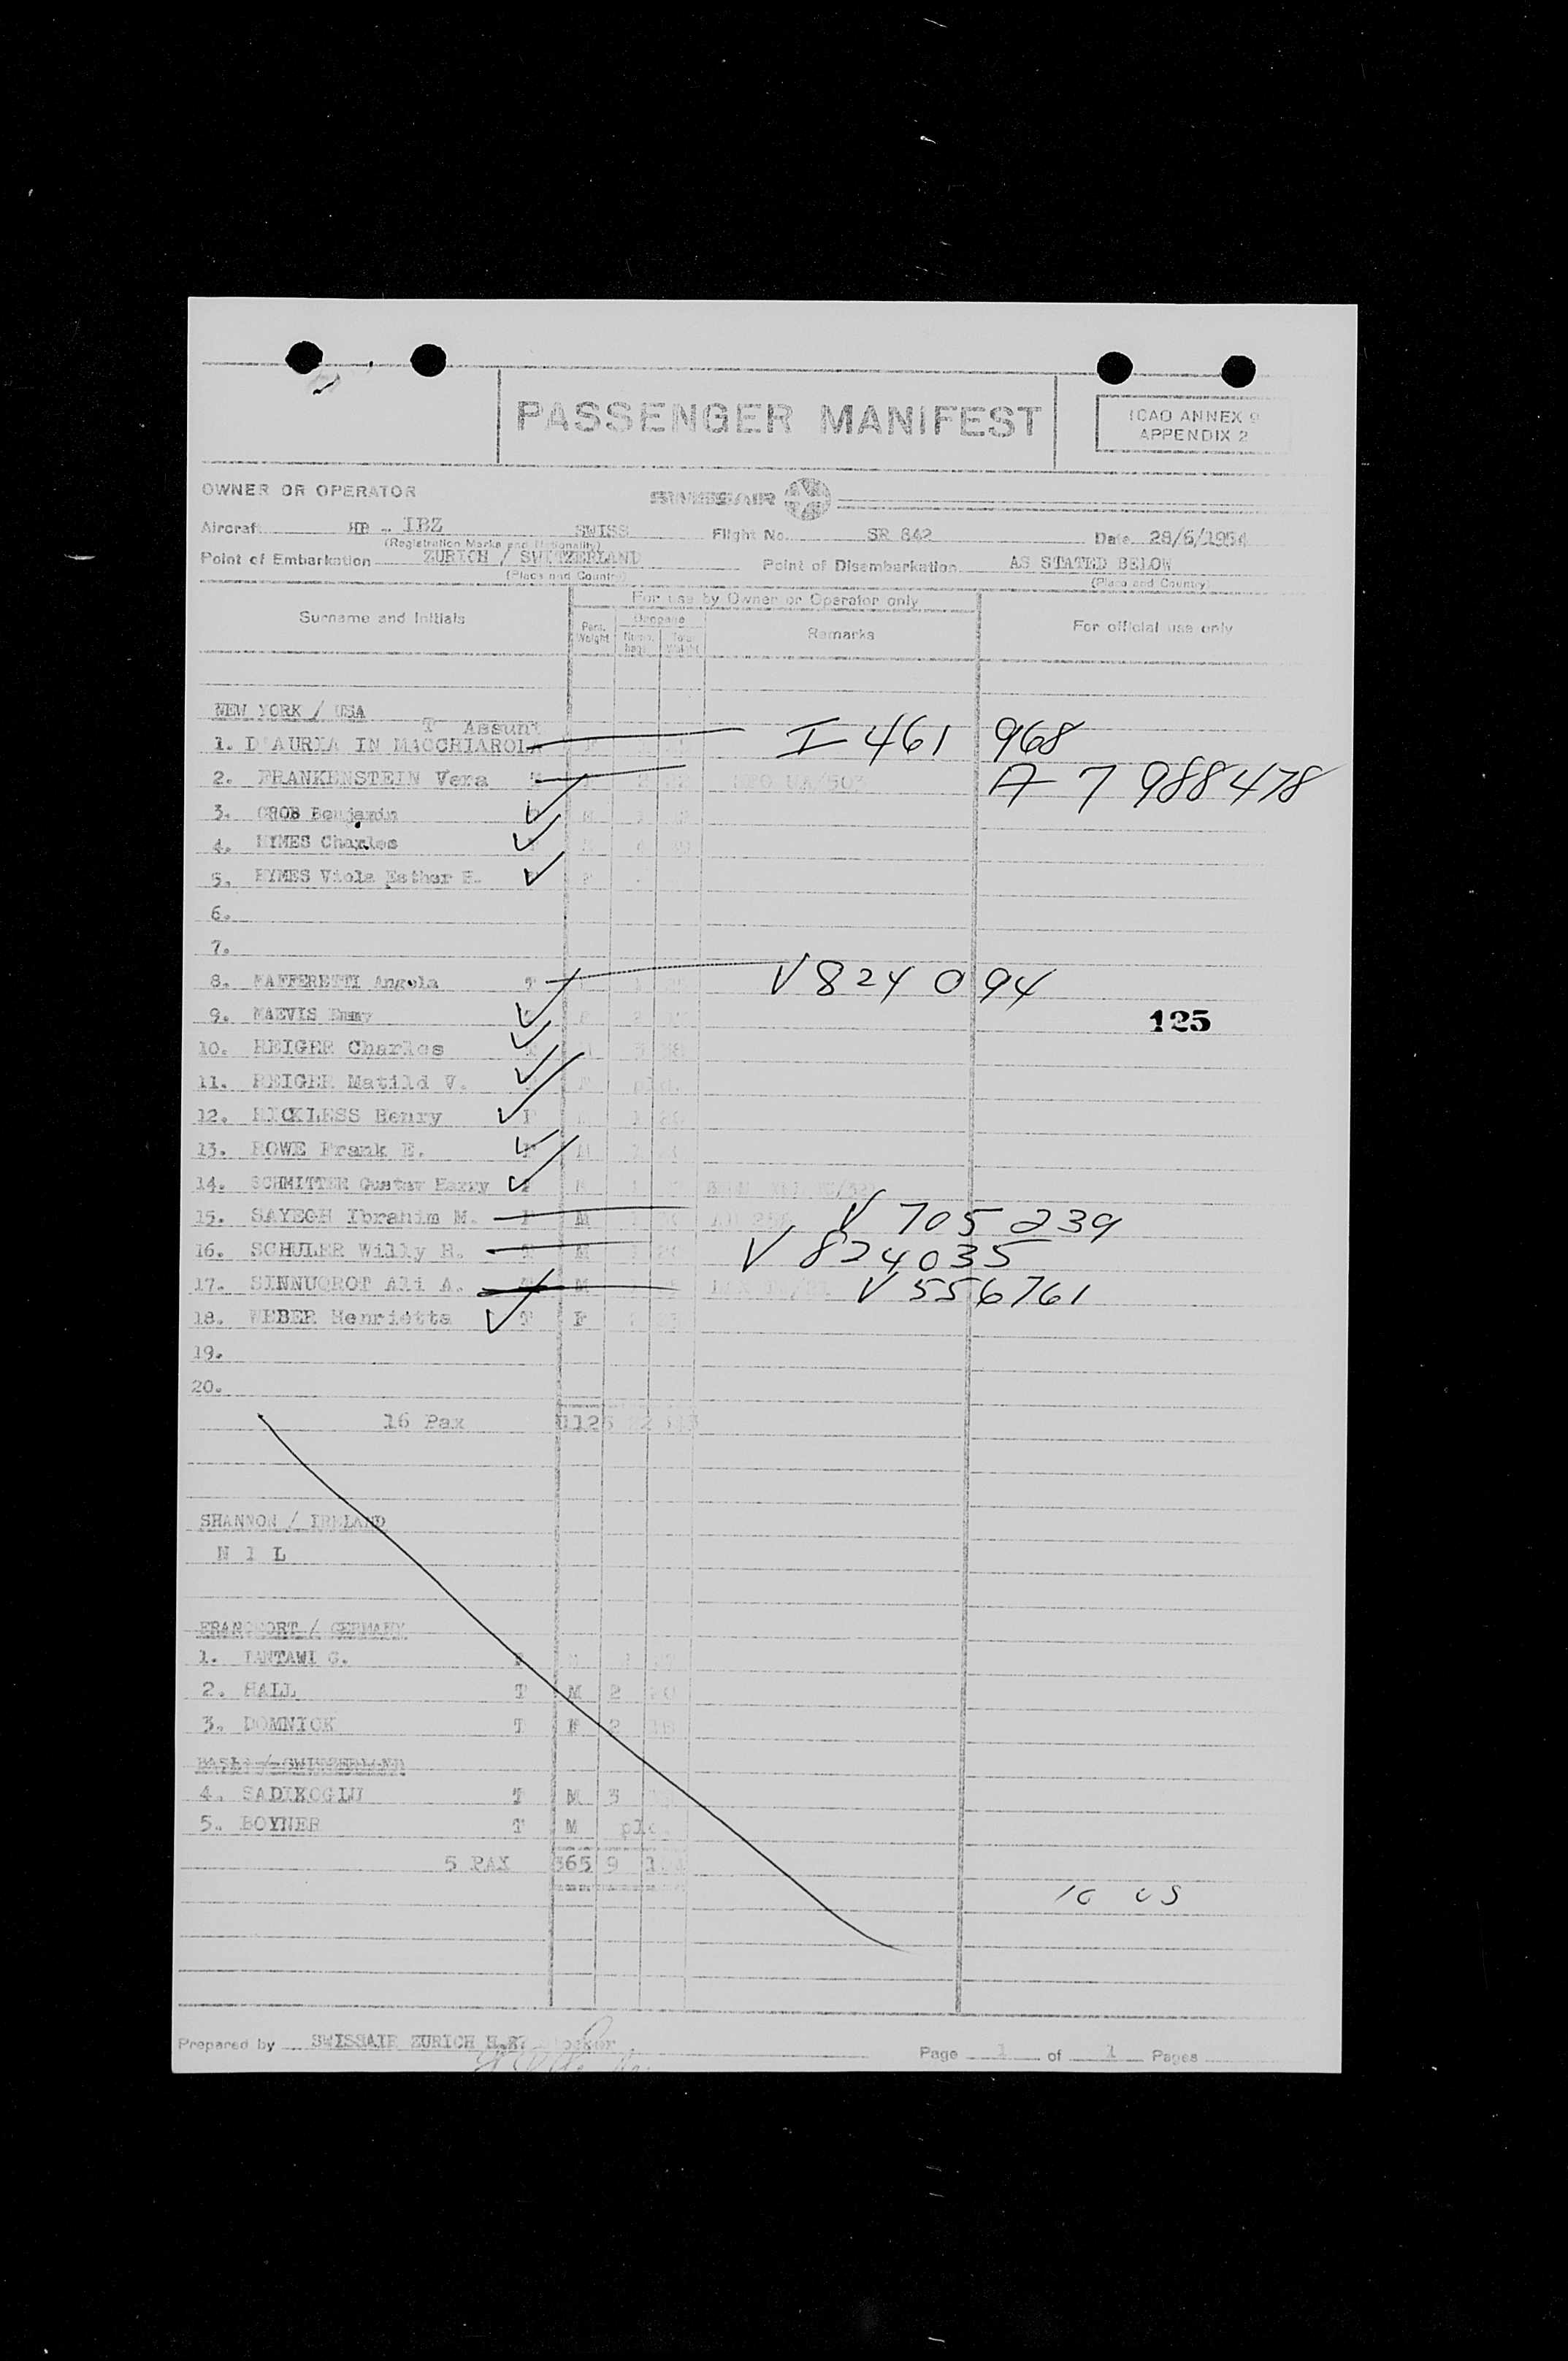 PASSENGER MANIFEST
ICAO ANNEX 9
APPENDIX 2
OWNER OR OPERATOR SWISSAIR
Aircraft HB - IBZ SWISS Flight No. SR 842 Date 28/6/1954
(Registration Marks and Nationality)
Point of Embarkation ZURICH / SWITZERLAND Point of Disembarkation AS STATED BELOW
(Place and Country) (Place and Country)
For use by Owner or Operator only
Surname and Initials Pers. Weight Baggage Total Weight Remarks For official use only
NEW YORK / USA
T Assunt
1. D'AURIA IN MACCHIAROLA I 461 968
2. FRANKENSTEIN Vera A 7 988478
3. GROB Benjamin
4. HYMES Charles
5. HYMES Viola Esther H.
6.
7.
8. MAFFERETTI Angela T V 824 094
9. MAEVIS Emmy
125
10. REIGER Charles
11. REIGER Matild V. F
12. RICKLESS Henry
13. ROWE Frank E. M
14. SCHMITTER Gustav Harry
15. SAYEGH Ibrahim M. M V 705 239
16. SCHULER Willy R. T M V 824035
17. SINNUQROT Ali A. M V 556761
18. WEBER Henrietta T F
19.
20.
16 Pax
SHANNON / IRELAND
N I L
FRANCFORT / GERMANY
1. TANTAWI G.
2. HALL T M 2 20
3. DOMNICK T F 2 18
4. SADIKOGLU T M 3
5. BOYNER T M
5 PAX 365 9
Prepared by SWISSAIR ZURICH
Page 1 of 1 Pages